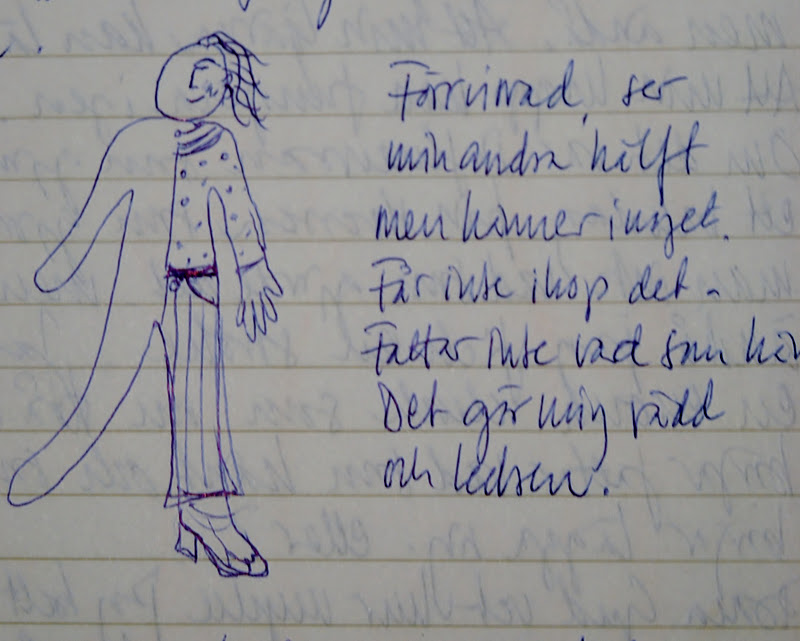 Förvirrad, ser
min andra hälft
men känner inget.
Får inte ihop det.
Fattar inte vad som hän
Det gör mig rädd
och ledsen.